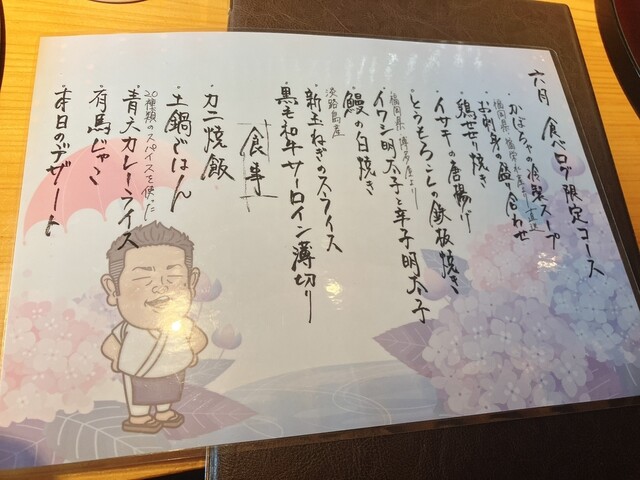 六月 食べログ限定コース
・かぼちゃの冷製スープ
・お刺身の盛り合わせ
・鶏せせり焼き
・イサキの唐揚げ
・とうもろこしの鉄板焼き
福岡県 博多屋より
・イワシ明太子と辛子明太子
・鰻の白焼き
淡路島産
・新玉ねぎのスライス
・黒毛和牛サーロイン薄切り
食事
・カニ焼飯
・土鍋ごはん
20種類のスパイスを使った
・青天カレーライス
・有馬じゃこ
・本日のデザート